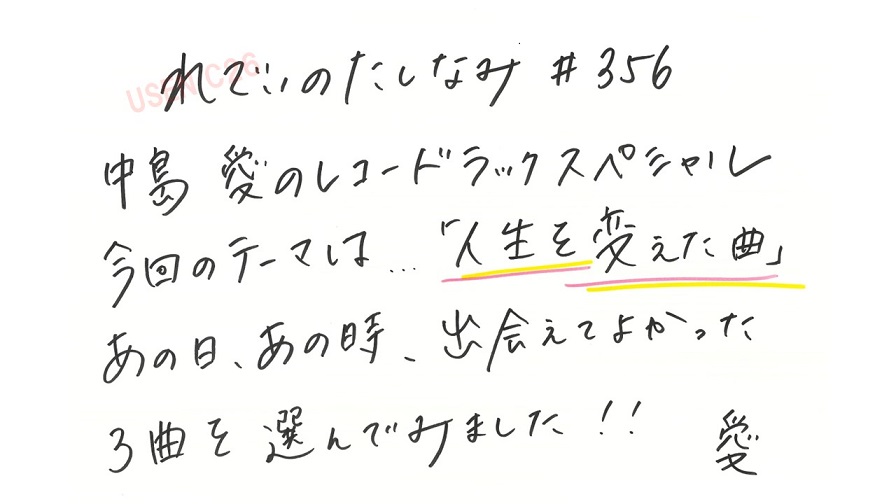 れでぃのたしなみ #356
USEN C26
中島 愛のレコードラックスペシャル
今回のテーマは…「人生を変えた曲」
あの日、あの時、出会えてよかった
3曲を選んでみました!!
愛